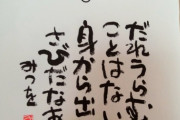 だれうらむ
ことはない
身から出た
さびだなあ
みつを